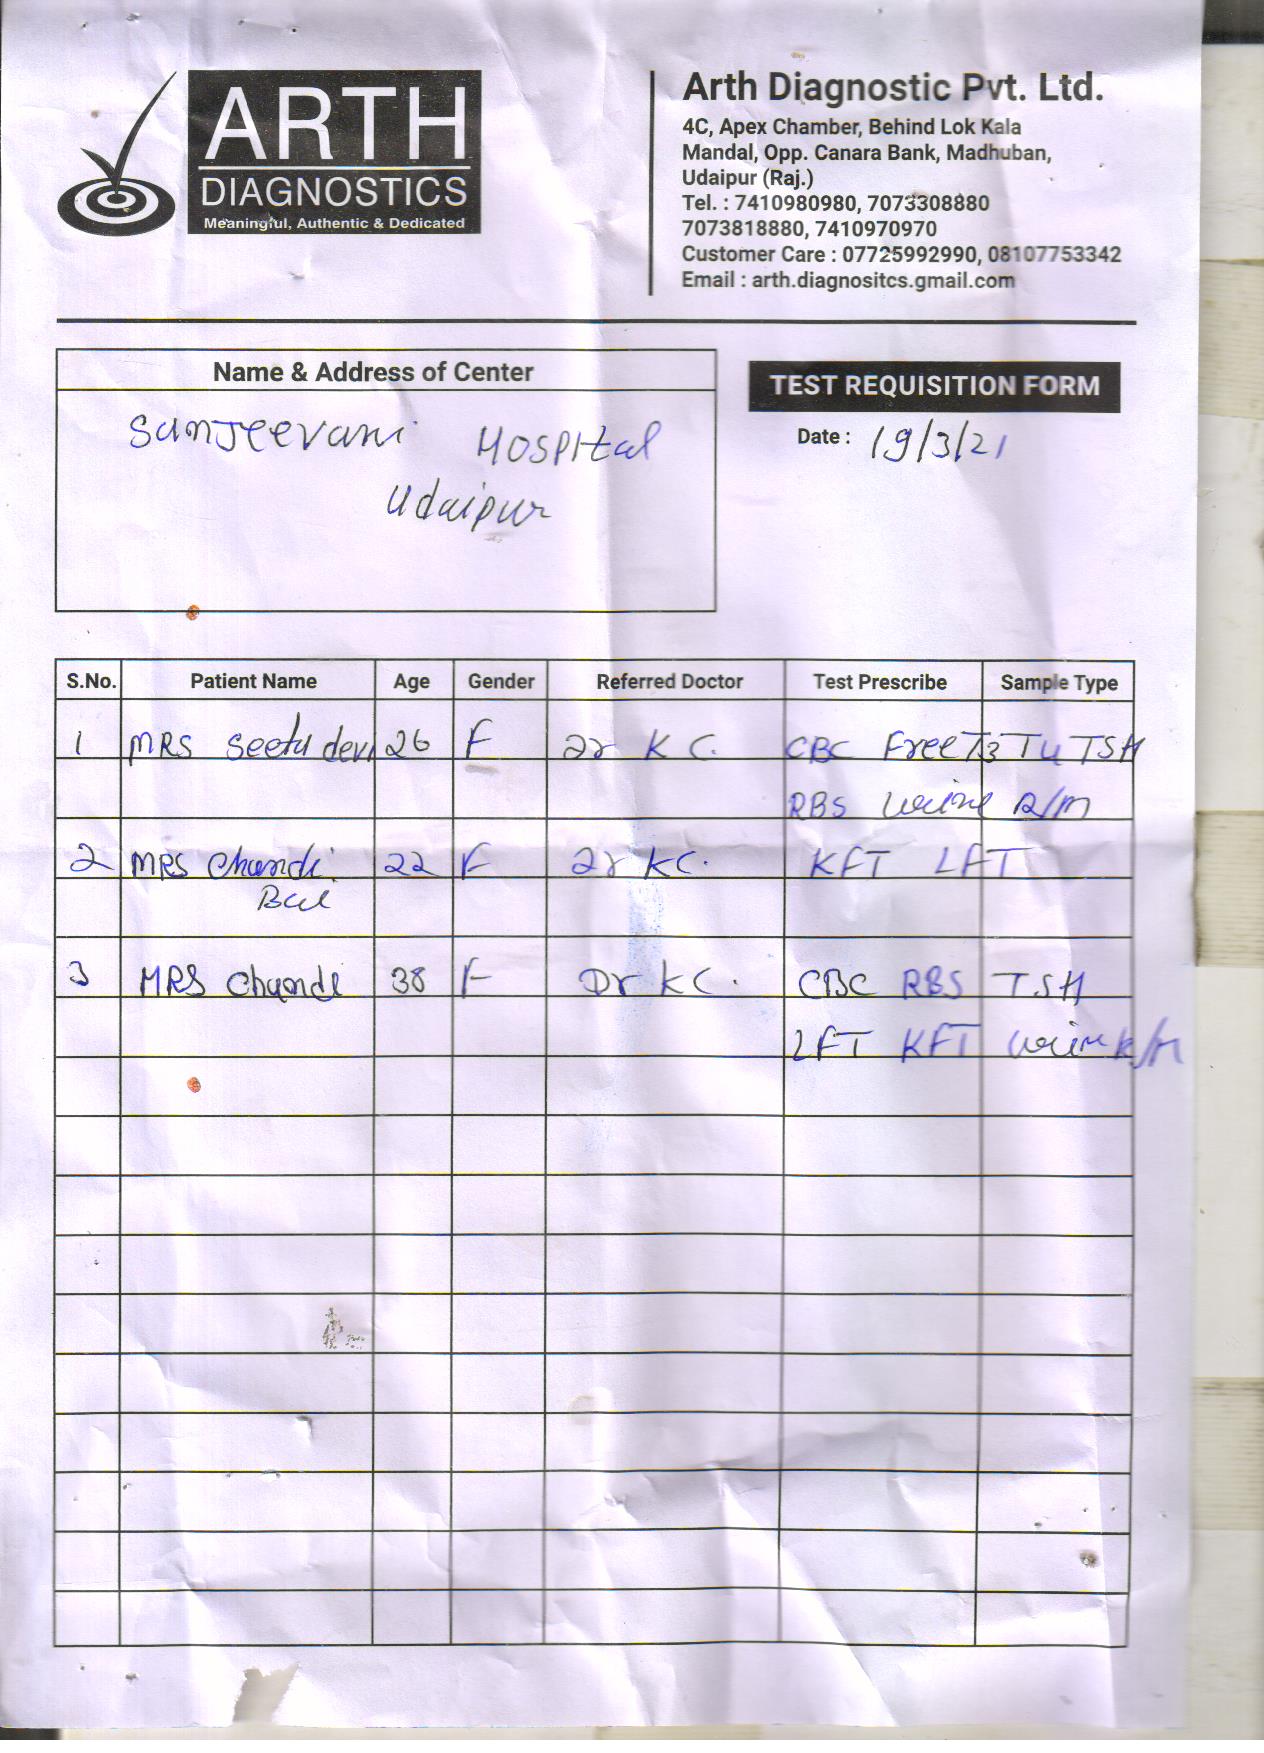 ARTH
DIAGNOSTICS
Meaningful, Authentic & Dedicated
Arth Diagnostic Pvt. Ltd.
4C, Apex Chamber, Behind Lok Kala
Mandal, Opp. Canara Bank, Madhuban,
Udaipur (Raj.)
Tel. : 7410980980, 7073308880
7073818880, 7410970970
Customer Care : 07725992990, 08107753342
Email : arth.diagnositcs.gmail.com
Name & Address of Center
Sanjeevani Hospital
Udaipur
TEST REQUISITION FORM
Date : 19/3/21
S.No. Patient Name Age Gender Referred Doctor Test Prescribe Sample Type
1 MRS Seetu devi 26 F Dr K C. CBC Free T3 T4 TSH
RBS Urine R/M
2 MRS Chandi 22 F Dr KC. KFT LFT
Bai
3 MRS Chandi 38 F Dr KC. CBC RBS TSH
LFT KFT Urine R/M